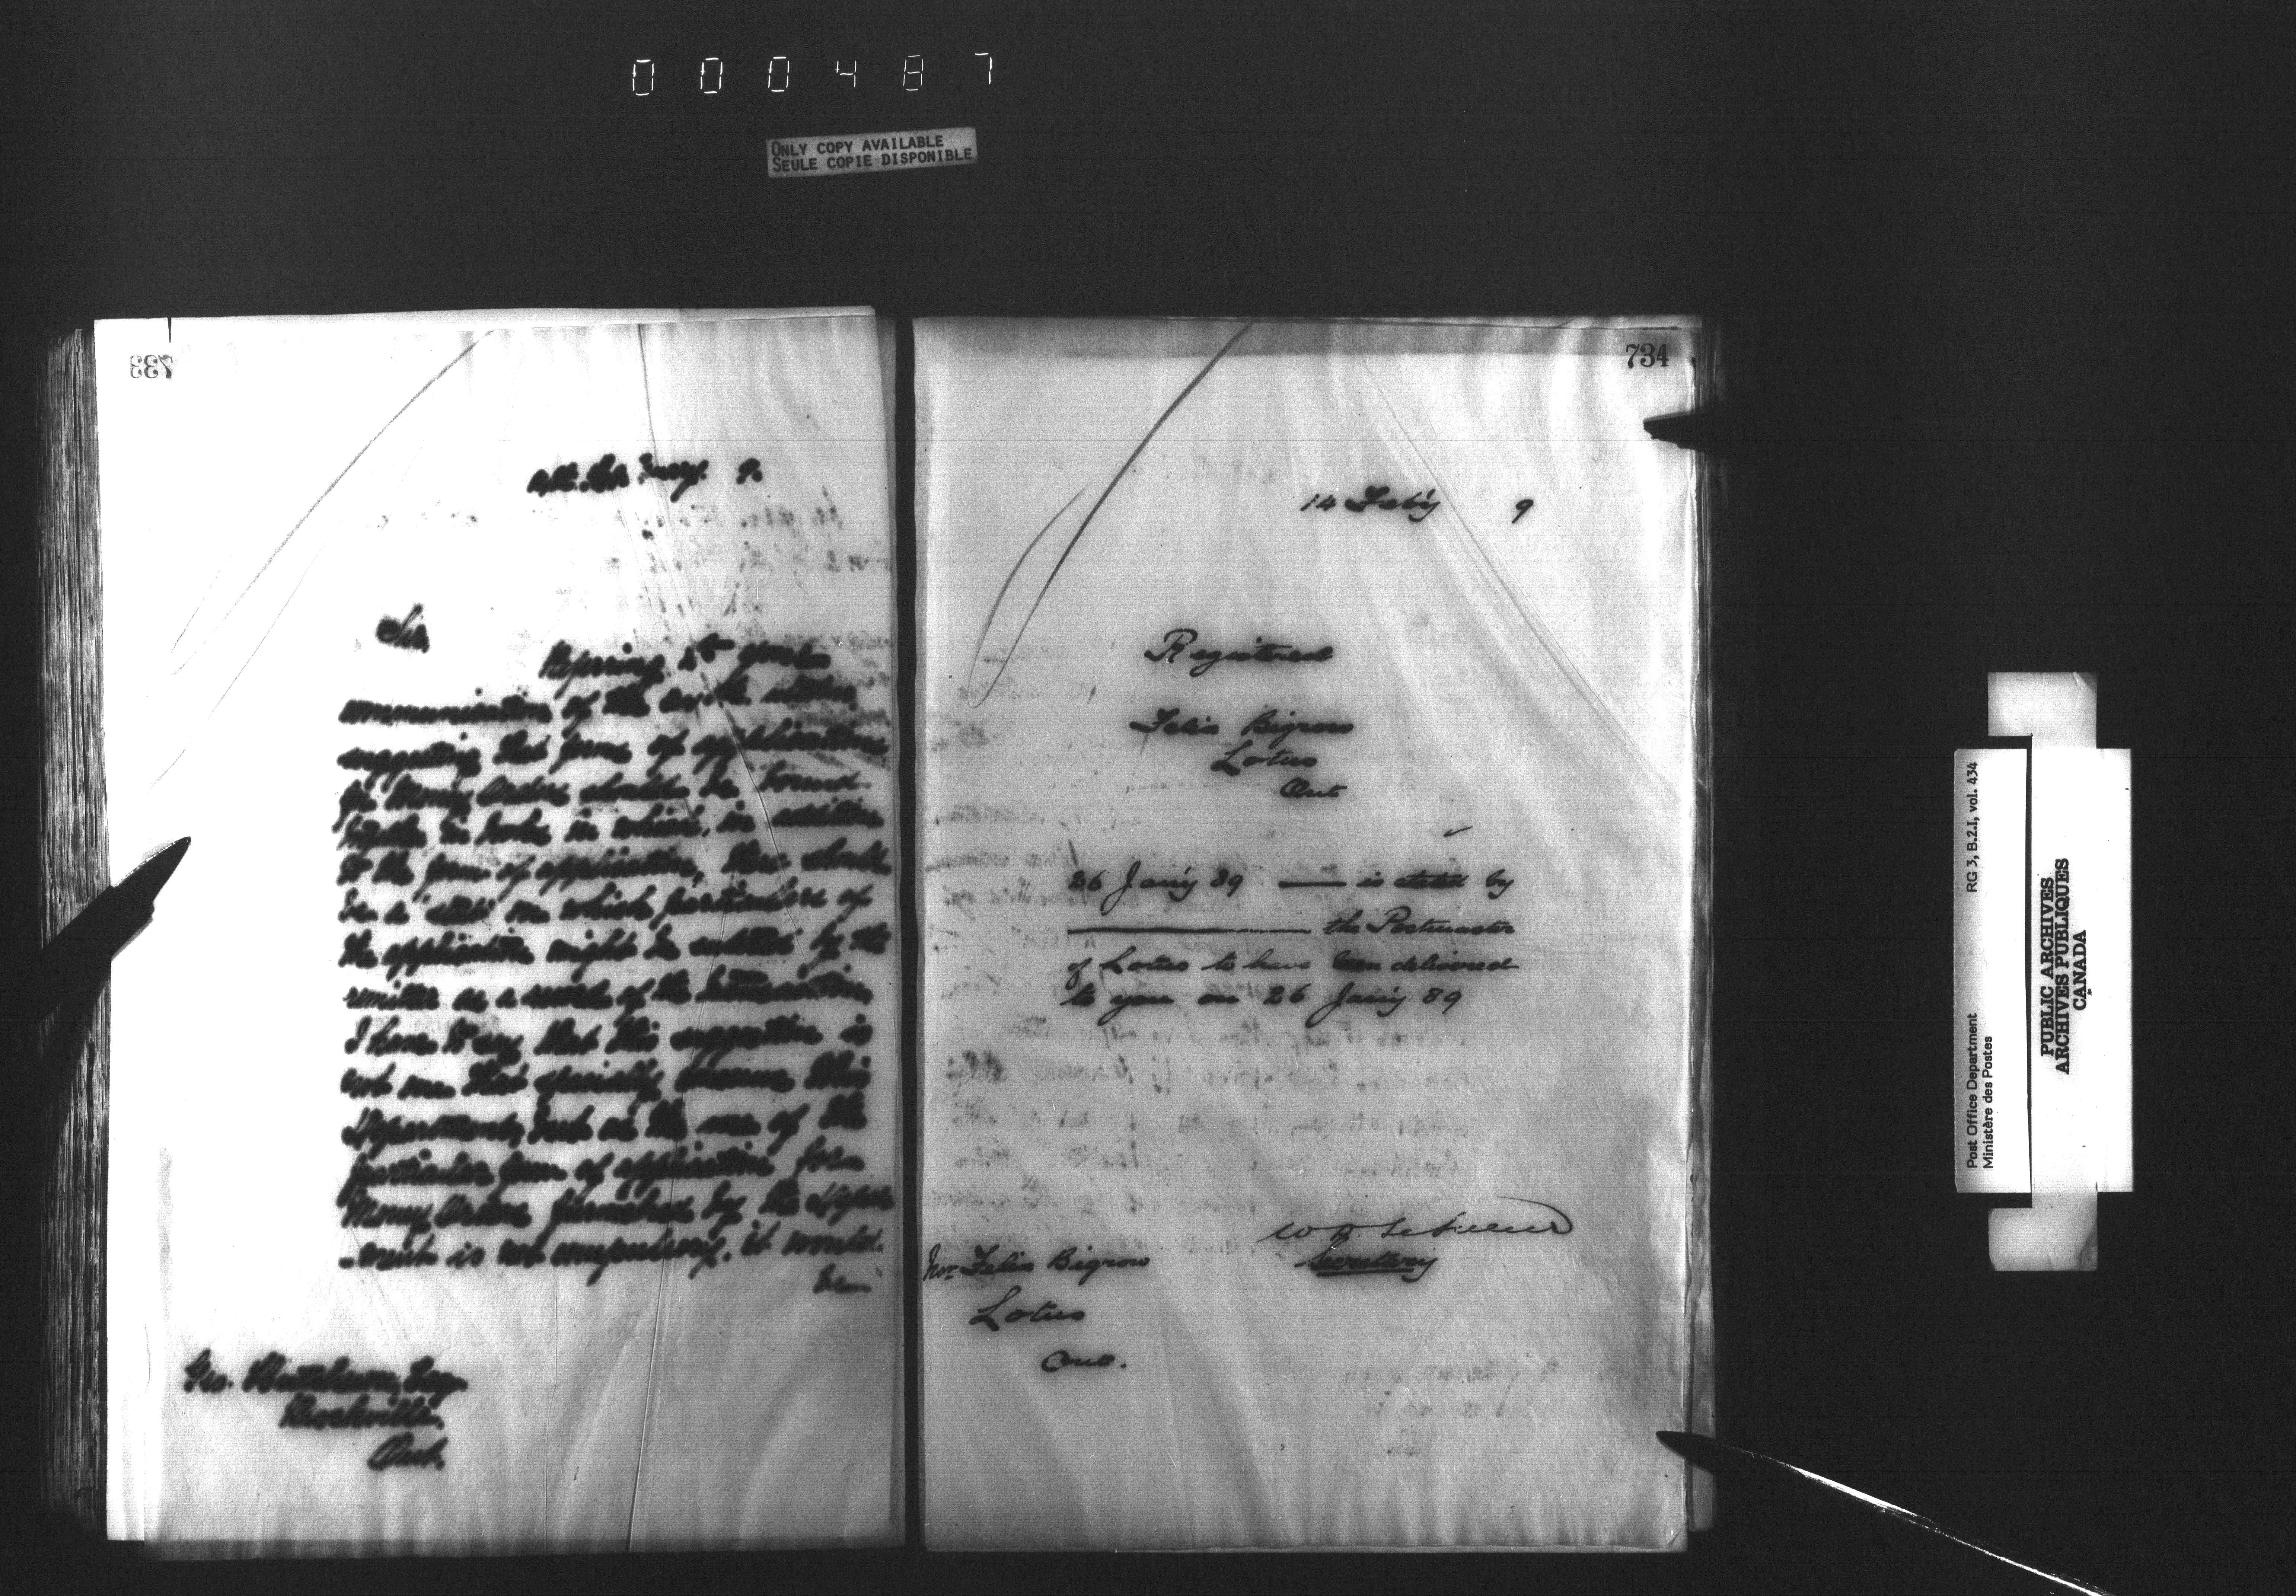 000487
ONLY COPY AVAILABLE
SEULE COPIE DISPONIBLE
733
9.
Sir,
Referring to your
communication of the
suggesting that forms of application
for Money Orders should be bound
together in books in which, in addition
to the form of application, there should
be a stub on which particulars of
the application might be entered by the
remitter as a record of the transaction,
I have to say that this suggestion is
not one that specially concerns this
Department, but as the use of the
particular form of application for
Money Orders furnished by the Depart
-ment is not compulsory, it would
be
Geo. Hutcheson, Esq.
Brockville,
Ont.
734
14 Feb'y 9
Registered
Felix Bigrow
Lotus
Ont
26 Jan'y 89 — is stated by
the Postmaster
of Lotus to have been delivered
to you on 26 Jan'y 89
Secretary
Mr. Felix Bigrow
Lotus
Ont.
Post Office Department
Ministère des Postes
RG 3, B.2.I, vol. 434
PUBLIC ARCHIVES
ARCHIVES PUBLIQUES
CANADA